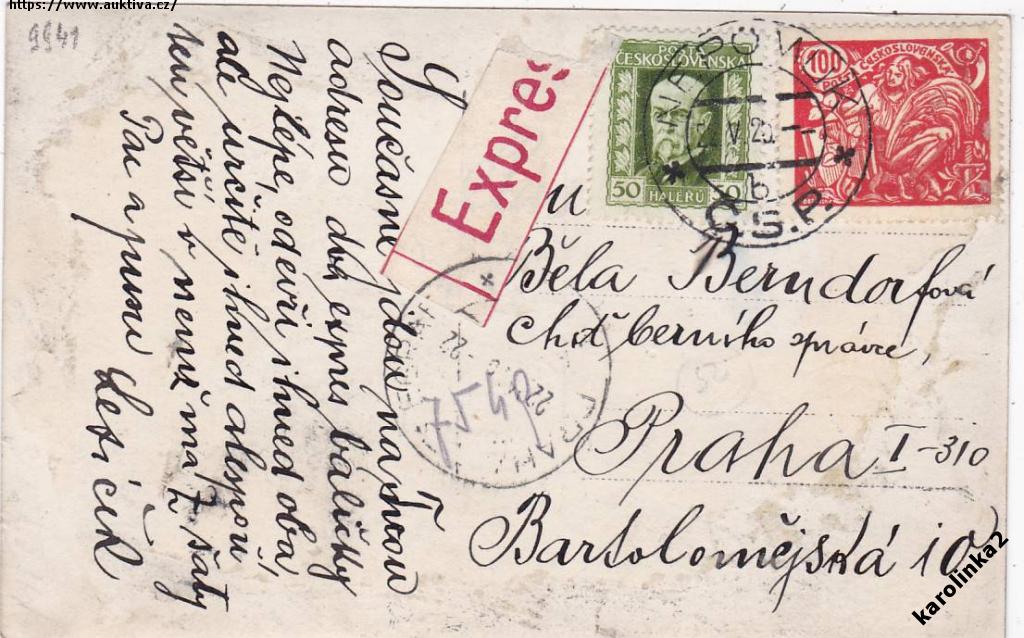 https://www.auktiva.cz/
9941
Současně jdou na Tvou
adresu dva expres balíčky
Nejlépe, odevři ihned oba,
ale určitě ihned alespoň
ten větší v němž má šaty
Pa a pusu
Expres
POŠTA
ČESKOSLOVENSKÁ
50 HALÉŘŮ 50
100
ČESKOSLOVENSKÁ
Č.S.P.
b
PRAHA
7549
Běla Berndorfová
choť berního správce,
Praha I-310
Bartolomějská 10
karolinka2